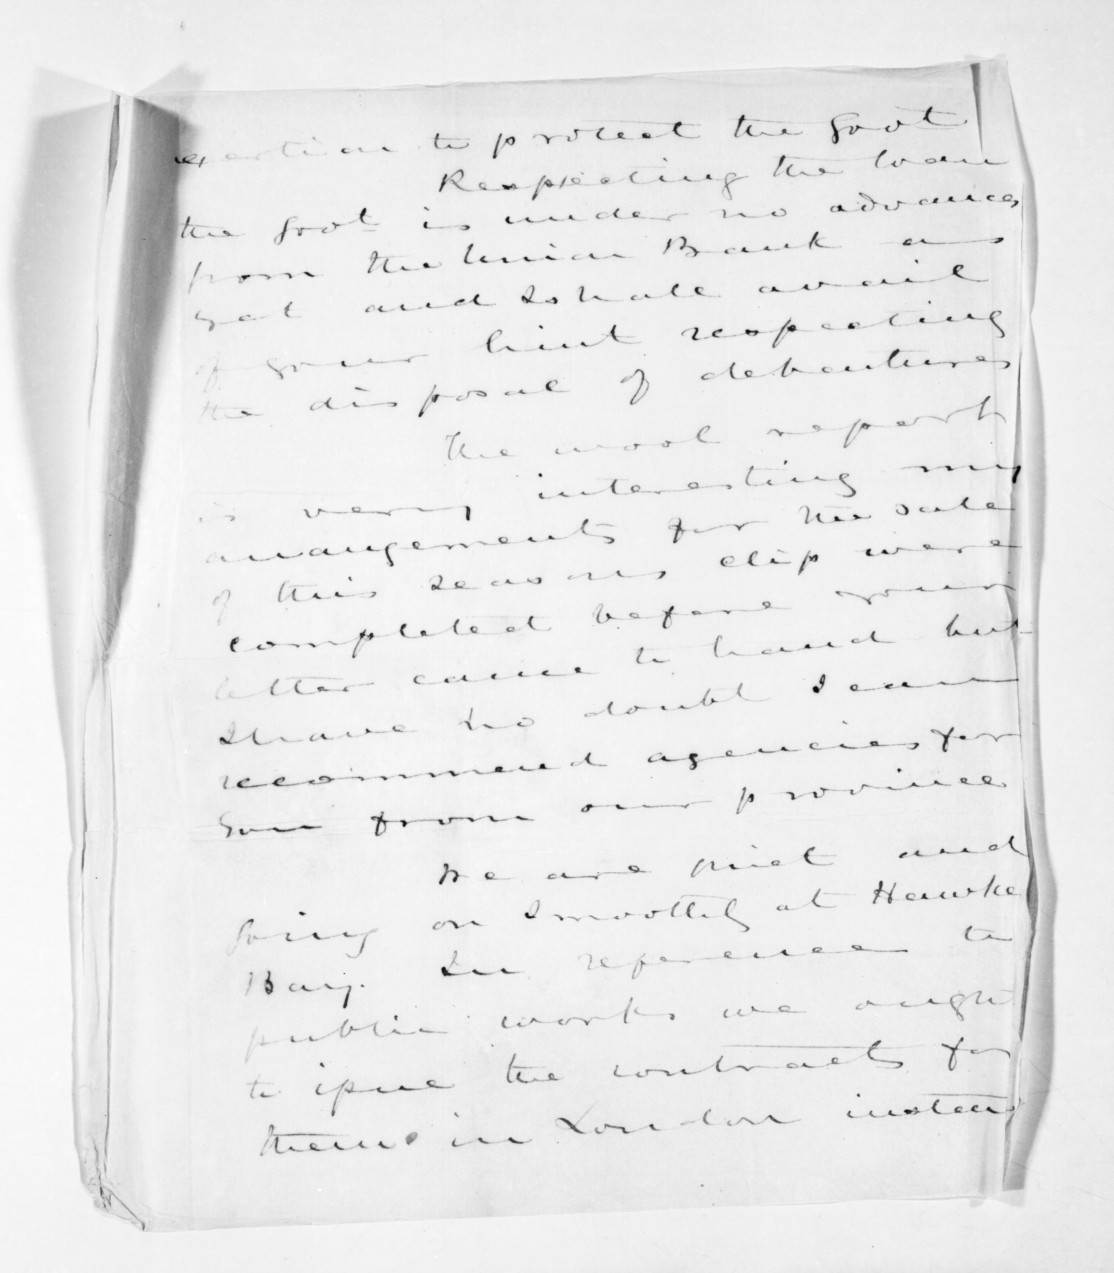 exertion to protect the Govt
Respecting the loan
the Govt is under no advances
from the Union Bank as
yet and I shall avail
of your hint respecting
the disposal of debentures
The wool report
is very interesting my
arrangements for the sale
of this seasons clip were
completed before your
letter came to hand but
I have no doubt I can
recommend agencies for
you from our province
We are quiet and
going on smoothly at Hawke
Bay. In reference to
public works we ought
to issue the contracts for
them in London instead